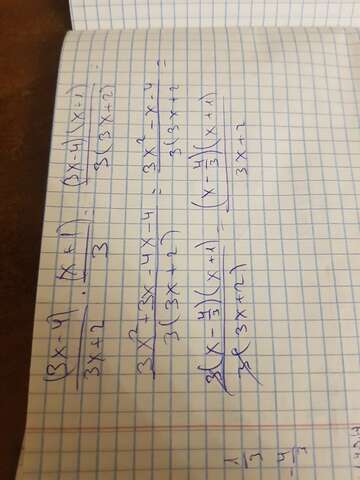 (3x-4)/(3x+2) · (x+1)/3 = (3x-4)(x+1)/3(3x+2) =
3x²+3x-4x-4/3(3x+2) = 3x²-x-4/3(3x+2) =
3(x-4/3)(x+1)/3(3x+2) = (x-4/3)(x+1)/3x+2
1/3
-4/3